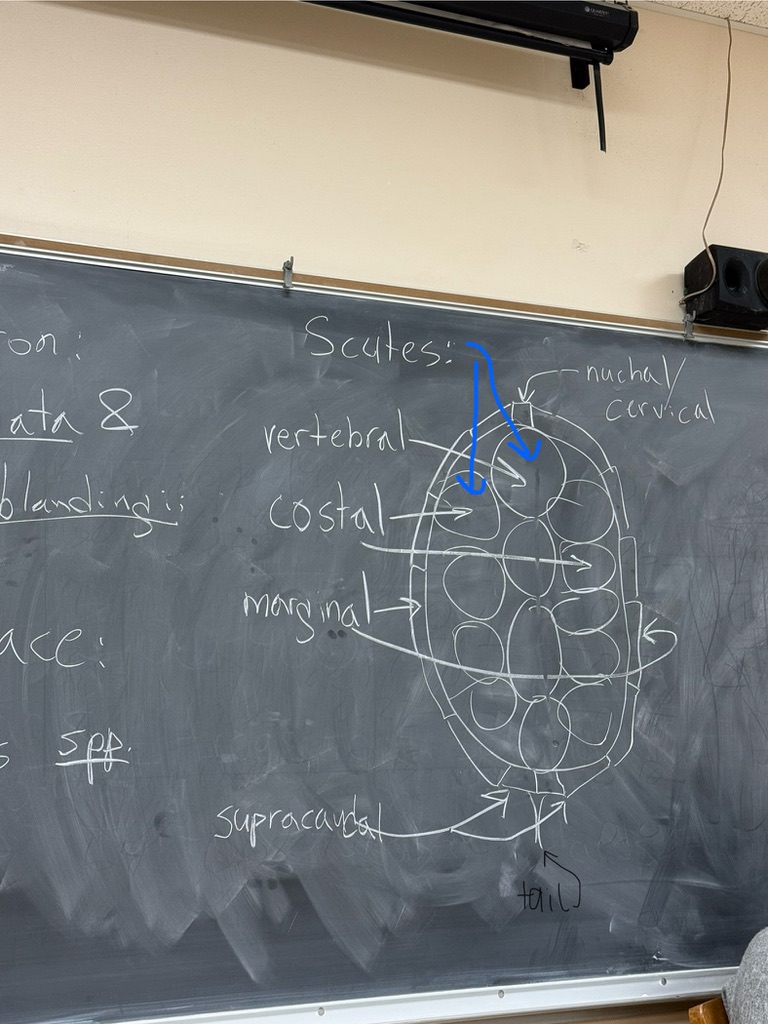 on:
ata &
blandingii
ace:
s spp.
Scutes:
nuchal/
cervical
vertebral
costal
marginal
supracaudal
tail